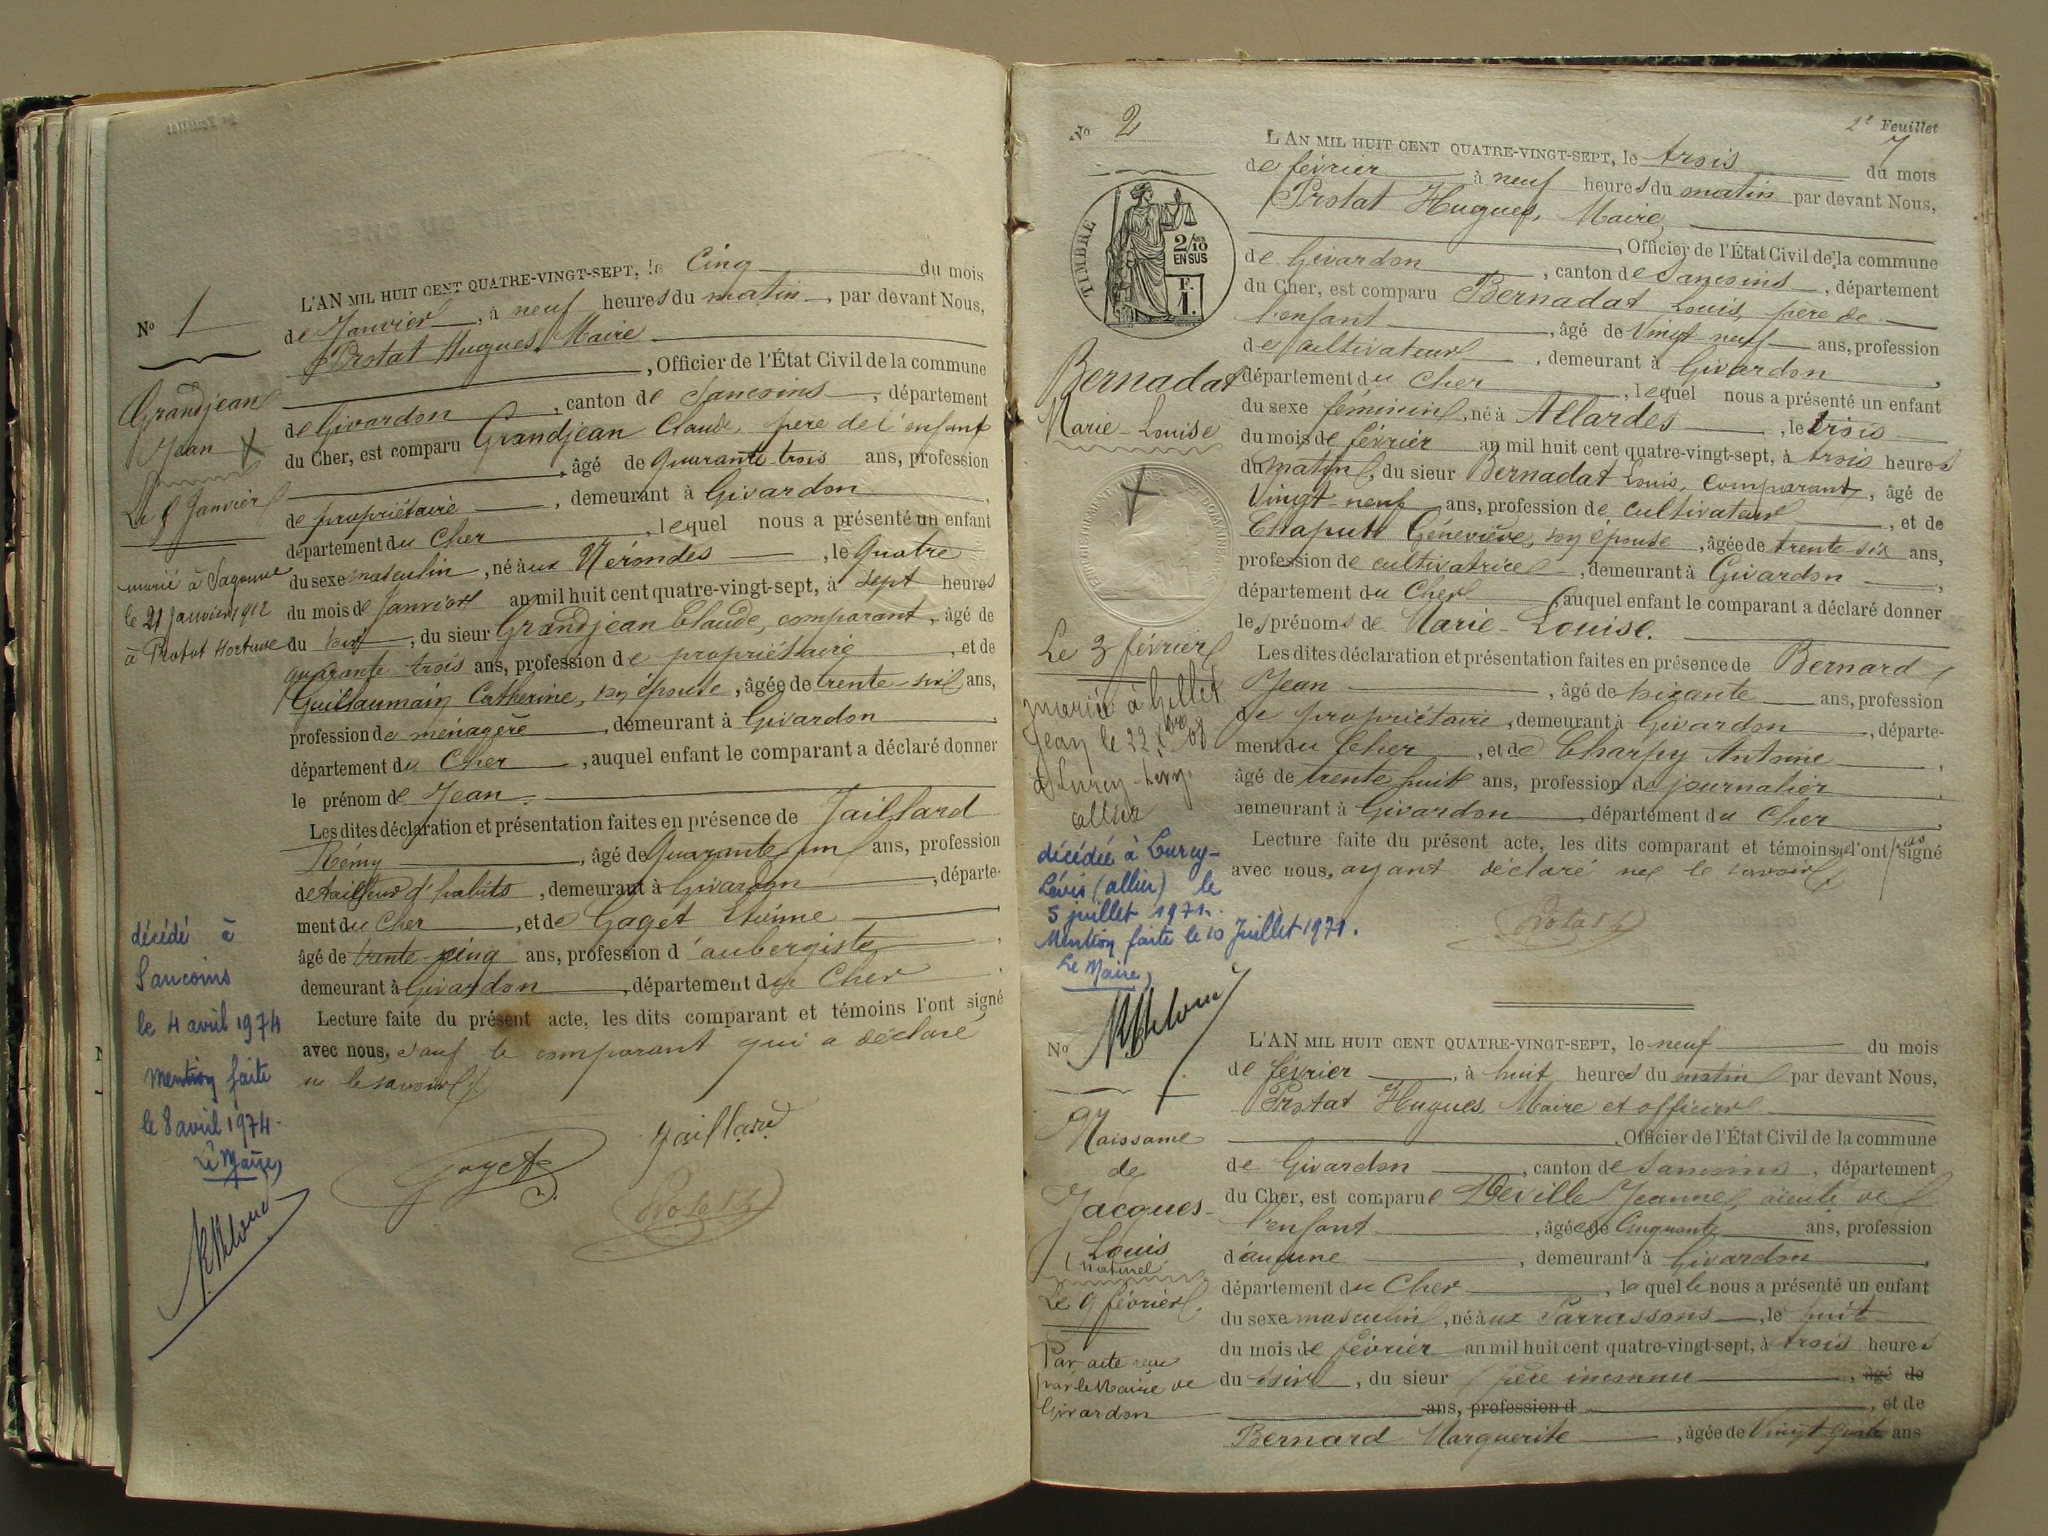 Nº 1
Grandjean
Jean
Le 5 Janvier
marié à Sagonne
le 21 janvier 1912
à Protot Hortense
décédé à
Sancoins
le 4 avril 1974
Mention faite
le 8 avril 1974.
Le Maire,
L'AN MIL HUIT CENT QUATRE-VINGT-SEPT, le Cinq du mois
de Janvier, à neuf heures du matin, par devant Nous,
Protat Hugues, Maire
, Officier de l'État Civil de la commune
de Givardon, canton de Sancoins, département
du Cher, est comparu Grandjean Claude, père de l'enfant
, âgé de quarante trois ans, profession
de propriétaire, demeurant à Givardon,
département du Cher, lequel nous a présenté un enfant
du sexe masculin, né aux Nérondes, le Quatre
du mois de Janvier an mil huit cent quatre-vingt-sept, à sept heures
du soir, du sieur Grandjean Claude, comparant, âgé de
quarante trois ans, profession de propriétaire, et de
Guillaumain Catherine, son épouse, âgée de trente-six ans,
profession de ménagère, demeurant à Givardon,
département du Cher, auquel enfant le comparant a déclaré donner
le prénom de Jean.
Les dites déclaration et présentation faites en présence de Jaillard
Rémy, âgé de Quarante un ans, profession
de tailleur d'habits, demeurant à Givardon, départe-
ment du Cher, et de Gaget Etienne,
âgé de trente-cinq ans, profession d'aubergiste,
demeurant à Givardon, département du Cher.
Lecture faite du présent acte, les dits comparant et témoins l'ont signé
avec nous, sauf le comparant qui a déclaré
ne le savoir.
Jaillard
Gaget
Protat h
2e Feuillet
7
Nº 2
TIMBRE
2/10 EN SUS
F.
1.
Bernadat
Marie-Louise
Le 3 février
mariée à Gillet
Jean le 22 xbre 08
à Lurcy-Lévy
allier
décédée à Lurcy-
Lévis (allier) le
5 juillet 1971.
Mention faite le 10 Juillet 1971.
Le Maire,
L'AN MIL HUIT CENT QUATRE-VINGT-SEPT, le trois du mois
de février à neuf heures du matin par devant Nous,
Protat Hugues, Maire
, Officier de l'État Civil de la commune
de Givardon, canton de Sancoins, département
du Cher, est comparu Bernadat Louis, père de
l'enfant, âgé de Vingt-neuf ans, profession
de cultivateur, demeurant à Givardon,
département du Cher, lequel nous a présenté un enfant
du sexe féminin, né à Allardes, le trois
du mois de février an mil huit cent quatre-vingt-sept, à trois heures
du matin, du sieur Bernadat Louis, comparant, âgé de
Vingt-neuf ans, profession de cultivateur, et de
Chaput Géneviève, son épouse, âgée de trente-six ans,
profession de cultivatrice, demeurant à Givardon,
département du Cher, auquel enfant le comparant a déclaré donner
les prénoms de Marie-Louise.
Les dites déclaration et présentation faites en présence de Bernard
Jean, âgé de soixante ans, profession
de propriétaire, demeurant à Givardon, départe-
ment du Cher, et de Charpy Antoine,
âgé de trente huit ans, profession de journalier,
demeurant à Givardon, département du Cher,
Lecture faite du présent acte, les dits comparant et témoins ne l'ont pas signé
avec nous, ayant déclaré ne le savoir.
Protat h
Nº
Naissance
de
Jacques-
Louis
naturel
Le 9 février.
Par acte reçu
par le Maire de
Givardon
L'AN MIL HUIT CENT QUATRE-VINGT-SEPT, le neuf du mois
de février, à huit heures du matin par devant Nous,
Protat Hugues, Maire et officier
, Officier de l'État Civil de la commune
de Givardon, canton de Sancoins, département
du Cher, est comparue Deville Jeanne, aïeule de
l'enfant, âgée de Cinquante ans, profession
d'aucune, demeurant à Givardon,
département du Cher, laquelle nous a présenté un enfant
du sexe masculin, né aux Sarrassons, le huit
du mois de février an mil huit cent quatre-vingt-sept, à trois heures
du soir, du sieur père inconnu, âgé de
ans, profession d, et de
Bernard Marguerite, âgée de Vingt quatre ans